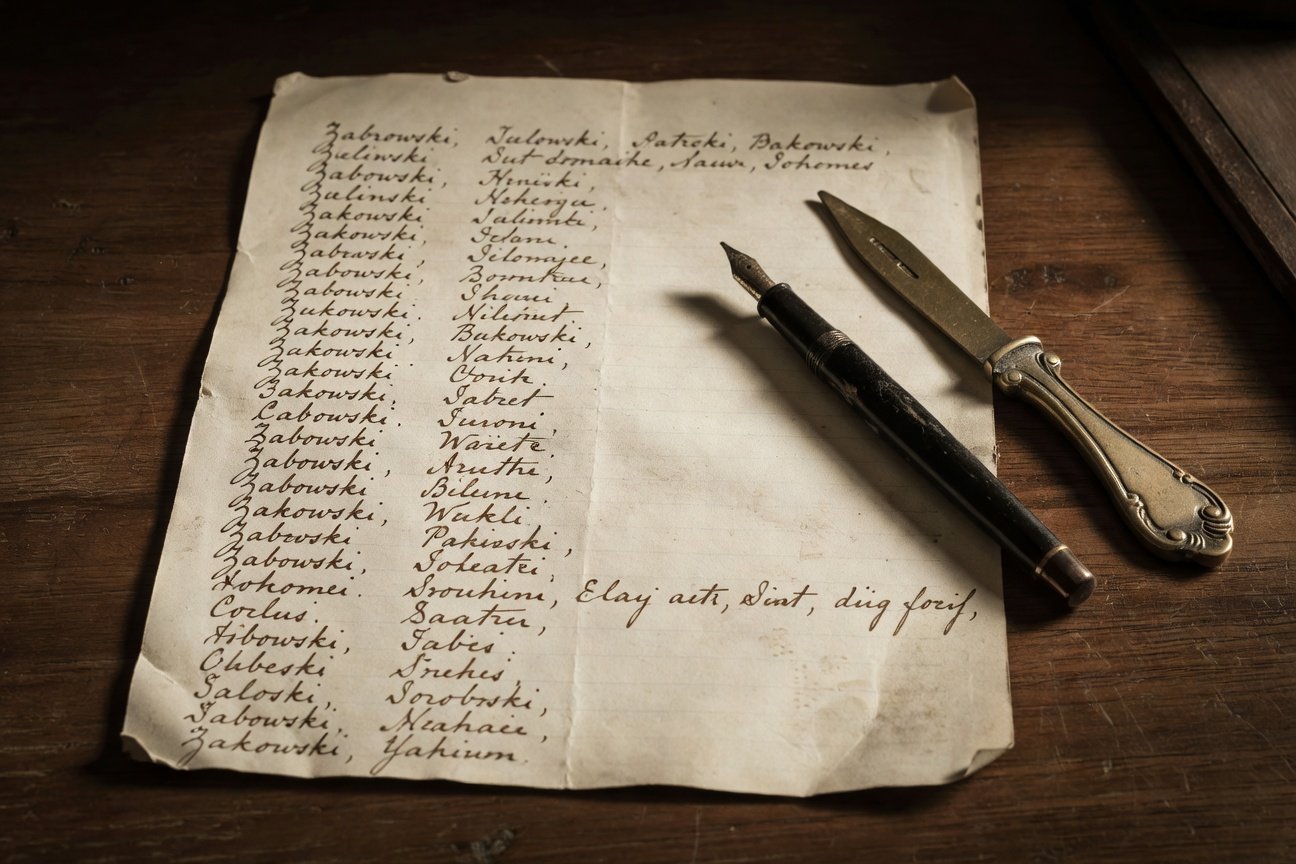 Zabrowski, Julowski, Patroki, Bakowski,
Zieliwski Sut domache, Nauw, Johomes
Zabowski, Hrniski,
Zielinski Nehergu,
Zakowski Jalimti,
Zakowski, Jelani.
Zabrwski, Jilomajee,
Zabowski,
Zabowski. Jhowi,
Zukowski. Niliomt
Zakowski, Bukowski,
Zakowski. Natrini,
Zakowski. Corit
Bakowski, Jabret
Cabowski. Juroni,
Zabowski Wariete,
Zabowski, Aruthi,
Zabowski Bilune.
Zakowski, Wukli,
Zabwski Pakisski,
Zabowski, Joheatri,
Hohomei. Srouhini, Elaij aetr, Sint, diig forif,
Corlus. Saatru,
Hibowski, Jabis.
Chbeski Sruhis,
Saloski, Jorobrski,
Jabowski, Neahaii,
Zakowski, Yahium.